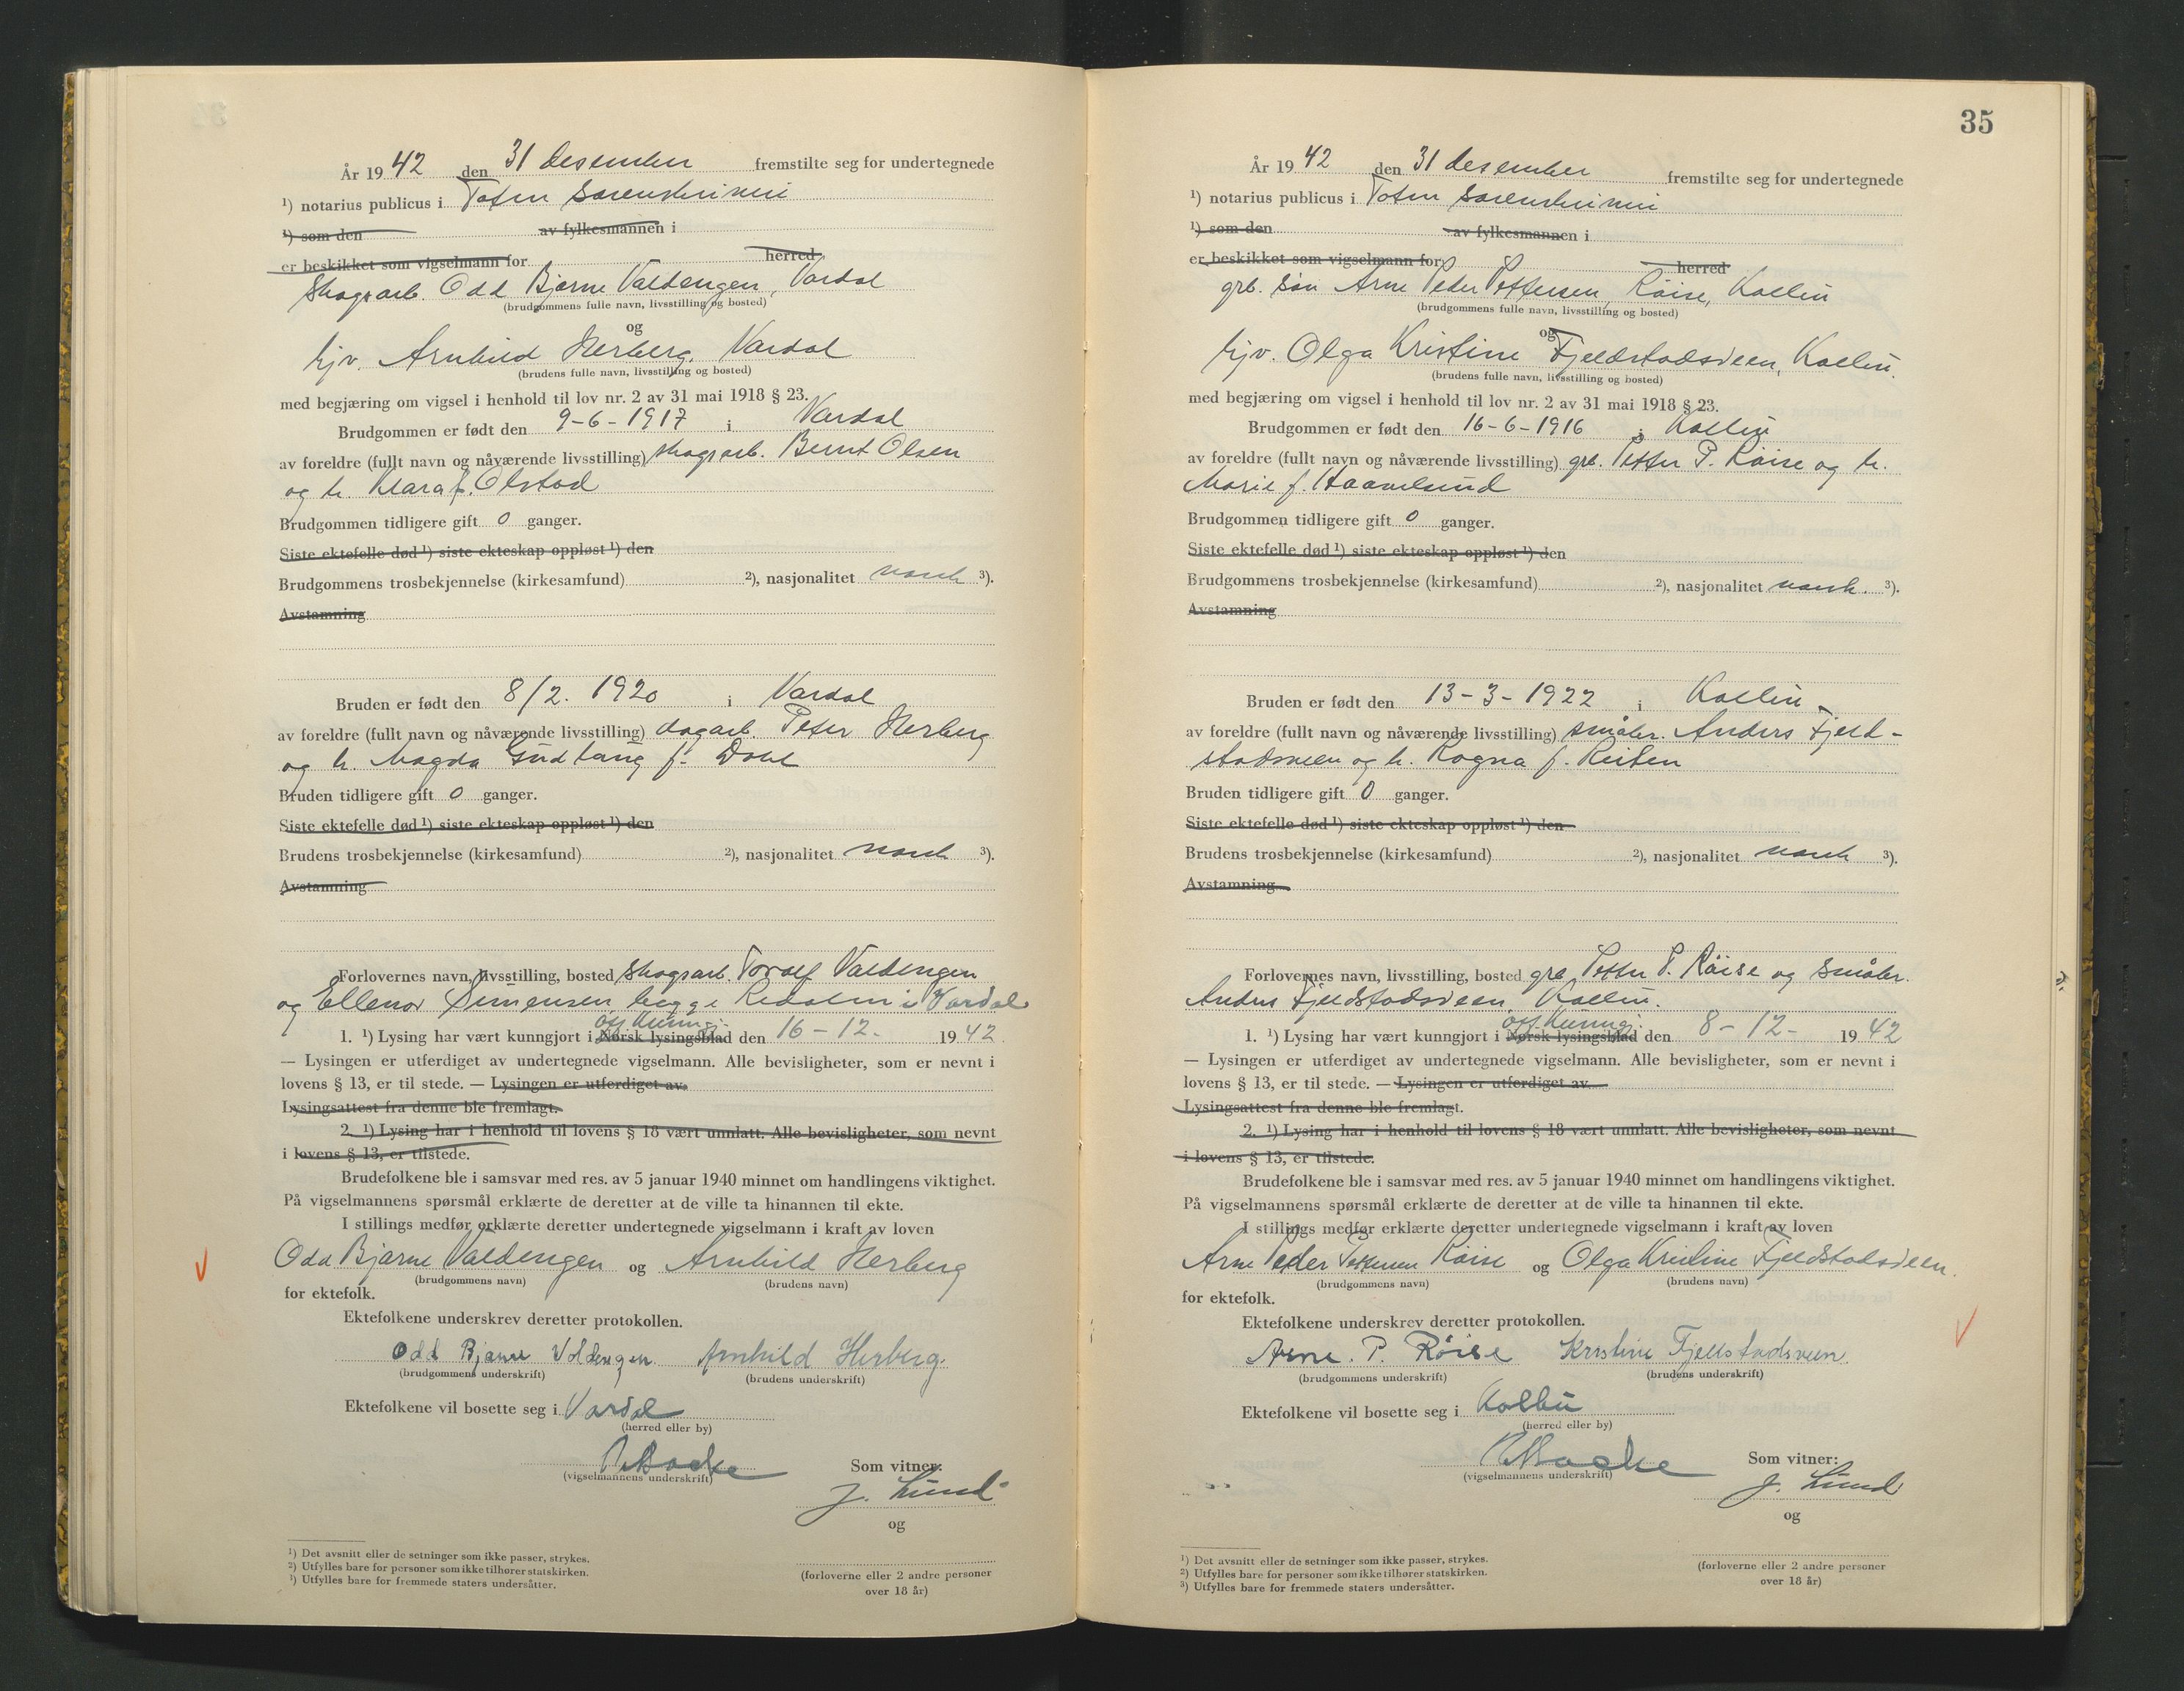 År 1942 den 31 desember fremstilte seg for undertegnede
¹) notarius publicus i Toten sorenskriveri
¹) som den av fylkesmannen i
er beskikket som vigselmann for herred
Skogsarb. Odd Bjarne Valdengen, Vardal
(brudgommens fulle navn, livsstilling og bosted)
og
hjv. Arnhild Herberg, Vardal
(brudens fulle navn, livsstilling og bosted)
med begjæring om vigsel i henhold til lov nr. 2 av 31 mai 1918 § 23.
Brudgommen er født den 9-6-1917 i Vardal
av foreldre (fullt navn og nåværende livsstilling) skogsarb. Bernt Olsen
og h. Klara f. Olstad
Brudgommen tidligere gift 0 ganger.
Siste ektefelle død ¹) siste ekteskap oppløst ¹) den
Brudgommens trosbekjennelse (kirkesamfund) ²), nasjonalitet norsk ³).
Avstamning
Bruden er født den 8/2. 1920 i Vardal
av foreldre (fullt navn og nåværende livsstilling) dagarb. Peter Herberg
og h. Magda Gudlaug f. Dahl
Bruden tidligere gift 0 ganger.
Siste ektefelle død ¹) siste ekteskap oppløst ¹) den
Brudens trosbekjennelse (kirkesamfund) ²), nasjonalitet norsk ³).
Avstamning
Forlovernes navn, livsstilling, bosted skogsarb. Toralf Valdengen
og Ellenor Simensen begge Redalen i Vardal
off. kunngj.
1. ¹) Lysing har vært kunngjort i Norsk lysingsblad den 16-12- 1942.
— Lysingen er utferdiget av undertegnede vigselmann. Alle bevisligheter, som er nevnt i
lovens § 13, er til stede. — Lysingen er utferdiget av
Lysingsattest fra denne ble fremlagt.
2. ¹) Lysing har i henhold til lovens § 18 vært unnlatt. Alle bevisligheter, som nevnt
i lovens § 13, er tilstede.
Brudefolkene ble i samsvar med res. av 5 januar 1940 minnet om handlingens viktighet.
På vigselmannens spørsmål erklærte de deretter at de ville ta hinannen til ekte.
I stillings medfør erklærte deretter undertegnede vigselmann i kraft av loven
Odd Bjarne Valdengen og Arnhild Herberg
(brudgommens navn) (brudens navn)
for ektefolk.
Ektefolkene underskrev deretter protokollen.
Odd Bjarne Voldengen Arnhild Herberg.
(brudgommens underskrift) (brudens underskrift)
Ektefolkene vil bosette seg i Vardal
(herred eller by)
(vigselmannens underskrift) Som vitner:
J. Lund
og
(forloverne eller 2 andre personer
over 18 år)
¹) Det avsnitt eller de setninger som ikke passer, strykes.
²) Utfylles bare for personer som ikke tilhører statskirken.
³) Utfylles bare for fremmede staters undersåtter.
35
År 1942 den 31 desember fremstilte seg for undertegnede
¹) notarius publicus i Toten sorenskriveri
¹) som den av fylkesmannen i
er beskikket som vigselmann for herred
grb. søn Arne Peder Pettersen, Røise, Kolbu
(brudgommens fulle navn, livsstilling og bosted)
og
hjv. Olga Kristine Fjeldstadsveen, Kolbu.
(brudens fulle navn, livsstilling og bosted)
med begjæring om vigsel i henhold til lov nr. 2 av 31 mai 1918 § 23.
Brudgommen er født den 16-6-1916 i Kolbu
av foreldre (fullt navn og nåværende livsstilling) grb. Petter P. Røise og h.
Marie f. Haavelsrud
Brudgommen tidligere gift 0 ganger.
Siste ektefelle død ¹) siste ekteskap oppløst ¹) den
Brudgommens trosbekjennelse (kirkesamfund) ²), nasjonalitet norsk. ³).
Avstamning
Bruden er født den 13-3-1922 i Kolbu
av foreldre (fullt navn og nåværende livsstilling) småbr. Anders Fjeld-
stadsveen og h. Ragna f. Reiten
Bruden tidligere gift 0 ganger.
Siste ektefelle død ¹) siste ekteskap oppløst ¹) den
Brudens trosbekjennelse (kirkesamfund) ²), nasjonalitet norsk ³).
Avstamning
Forlovernes navn, livsstilling, bosted grb Petter P. Røise og småbr.
Anders Fjeldstadsveen Kolbu.
off. kunngj.
1. ¹) Lysing har vært kunngjort i Norsk lysingsblad den 8-12- 1942
— Lysingen er utferdiget av undertegnede vigselmann. Alle bevisligheter, som er nevnt i
lovens § 13, er til stede. — Lysingen er utferdiget av
Lysingsattest fra denne ble fremlagt.
2. ¹) Lysing har i henhold til lovens § 18 vært unnlatt. Alle bevisligheter, som nevnt
i lovens § 13, er tilstede.
Brudefolkene ble i samsvar med res. av 5 januar 1940 minnet om handlingens viktighet.
På vigselmannens spørsmål erklærte de deretter at de ville ta hinannen til ekte.
I stillings medfør erklærte deretter undertegnede vigselmann i kraft av loven
Arne Peder Pettersen Røise og Olga Kristine Fjeldstadsveen.
(brudgommens navn) (brudens navn)
for ektefolk.
Ektefolkene underskrev deretter protokollen.
Arne. P. Røise Kristine Fjellstadsveen.
(brudgommens underskrift) (brudens underskrift)
Ektefolkene vil bosette seg i Kolbu
(herred eller by)
(vigselmannens underskrift) Som vitner:
J. Lund
og
(forloverne eller 2 andre personer
over 18 år)
¹) Det avsnitt eller de setninger som ikke passer, strykes.
²) Utfylles bare for personer som ikke tilhører statskirken.
³) Utfylles bare for fremmede staters undersåtter.